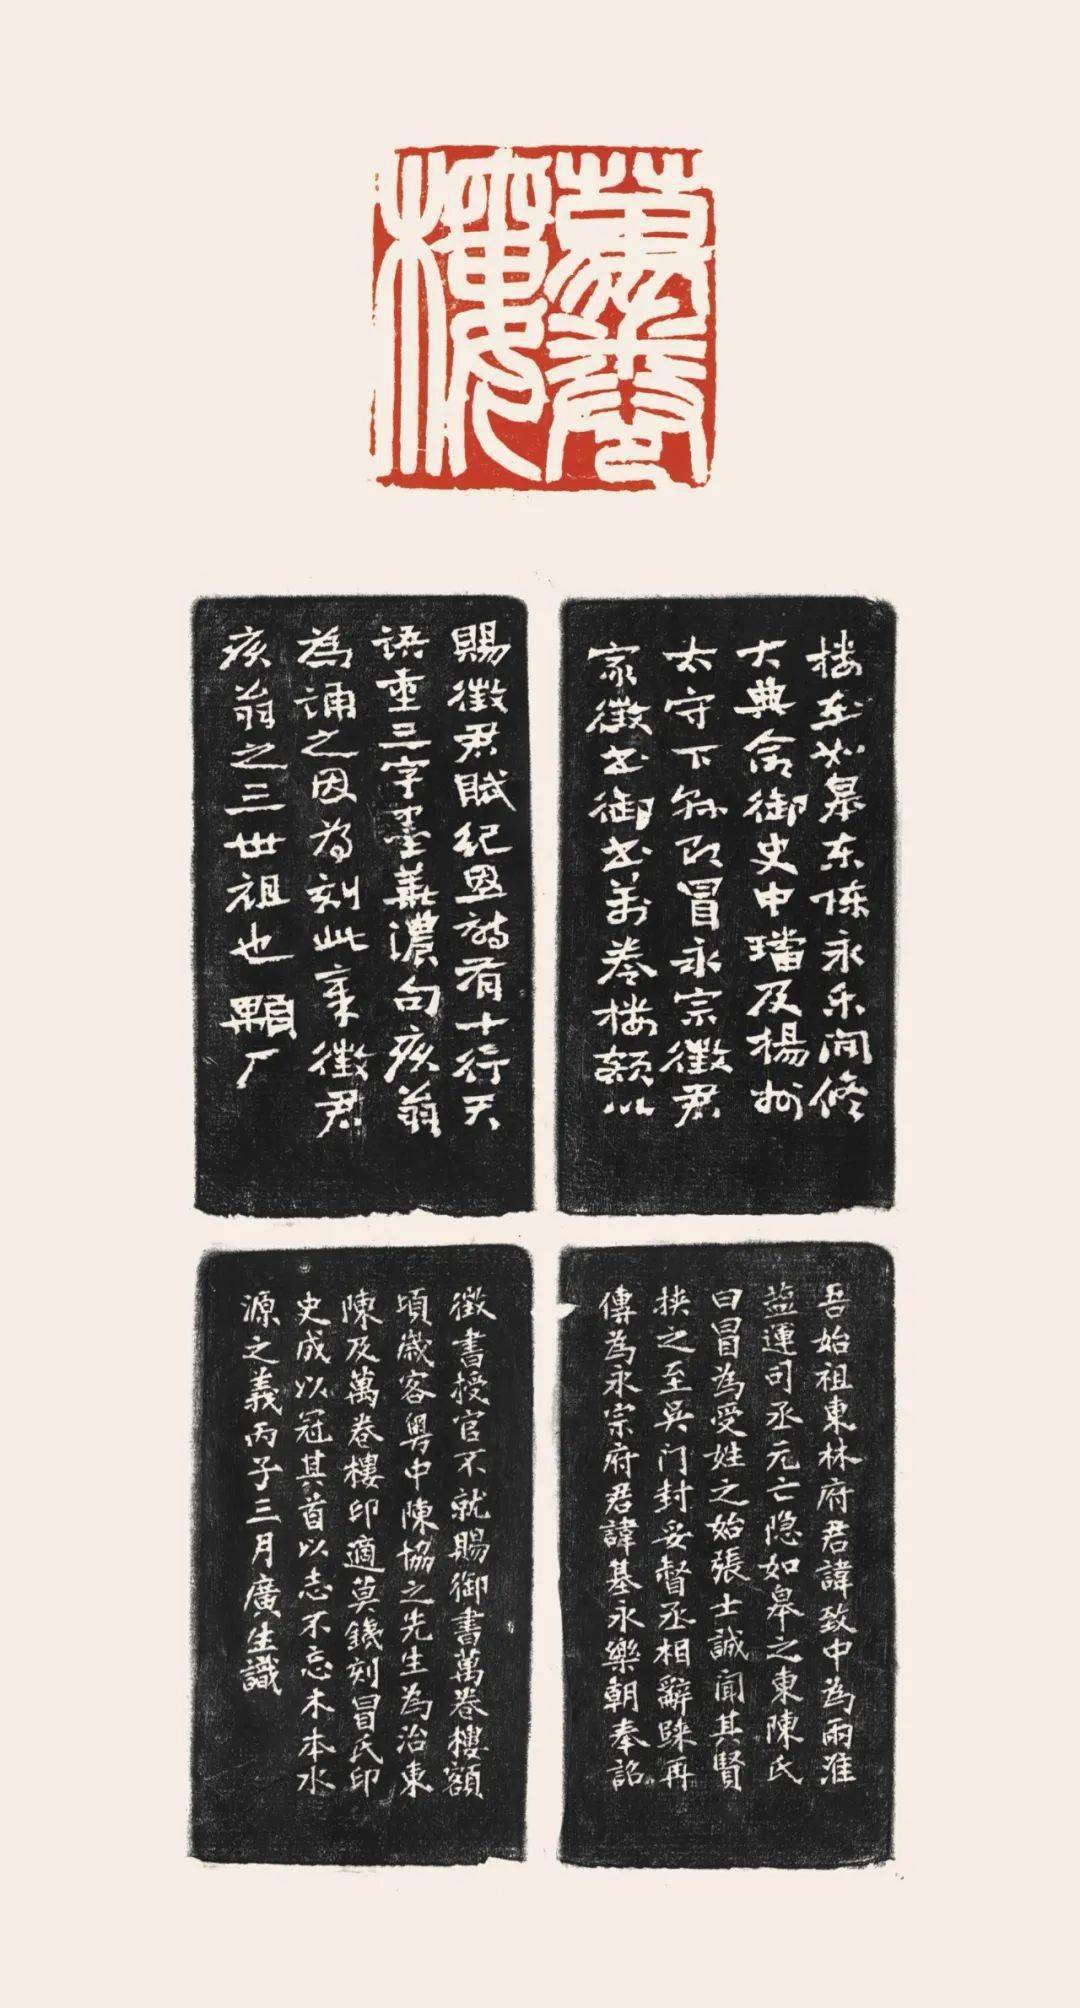 萬卷
樓
楼在如皋东陈永乐间修
大典食御史中璫及揚州
太守下纷即冒永宗徵君
家徵书御书万卷楼额以
賜徵君賦纪恩詩有十行天
語重三字墨華濃句疚翁
為诵之因为刻此章徵君
疚翁之三世祖也 顆厂
吾始祖東林府君諱致中為兩淮
盐運司丞元亡隐如皋之東陳氏
曰冒為受姓之始張士誠聞其賢
挟之至吳门封妥督丞相辭歸再
傳為永宗府君諱基永樂朝奉詔
徵書授官不就賜御書萬卷樓額
頃歲客粵中陳協之先生為治東
陳及萬卷樓印適莫鐵刻冒氏印
史成以冠其首以志不忘木本水
源之義丙子三月廣生識